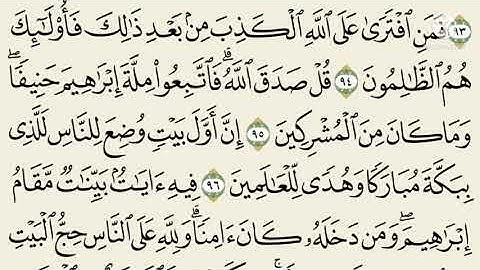 ٩٣ فَمَنِ ٱفْتَرَىٰ عَلَى ٱللَّهِ ٱلْكَذِبَ مِنۢ بَعْدِ ذَٰلِكَ فَأُو۟لَٰٓئِكَ
هُمُ ٱلظَّٰلِمُونَ ٩٤ قُلْ صَدَقَ ٱللَّهُۗ فَٱتَّبِعُوا۟ مِلَّةَ إِبْرَٰهِيمَ حَنِيفًاۖ
وَمَا كَانَ مِنَ ٱلْمُشْرِكِينَ ٩٥ إِنَّ أَوَّلَ بَيْتٍ وُضِعَ لِلنَّاسِ لَلَّذِى
بِبَكَّةَ مُبَارَكًا وَهُدًى لِّلْعَٰلَمِينَ ٩٦ فِيهِ ءَايَٰتٌۢ بَيِّنَٰتٌ مَّقَامُ
إِبْرَٰهِيمَۖ وَمَن دَخَلَهُۥ كَانَ ءَامِنًاۗ وَلِلَّهِ عَلَى ٱلنَّاسِ حِجُّ ٱلْبَيْتِ